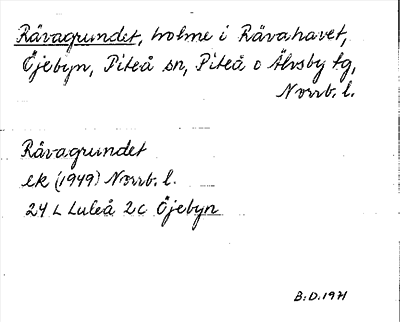 Råvagrundet, holme i Råvahavet,
Öjebyn, Piteå sn, Piteå o Älvsby tg,
Norrb. l.
Råvagrundet
ek (1949) Norrb. l.
24 L Luleå 2c Öjebyn
B.D. 1971